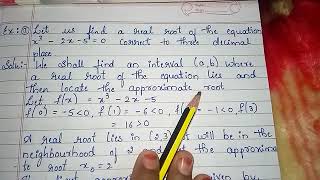 Ex:- ① Let us find a real root of the equation
x³ - 2x - 5 = 0 correct to three decimal
place.
Solu:- We shall find an interval (a,b) where
a real root of the equation lies and
then locate the approximate root
Let f(x) = x³ - 2x - 5
f(0) = -5 < 0, f(1) = -6 < 0, f( -1 < 0, f(3)
= 16 > 0
A real root lies in (2,3) will be in the
neighbourhood of 2 and the approxima
te root x₀ = 2
approximation given by